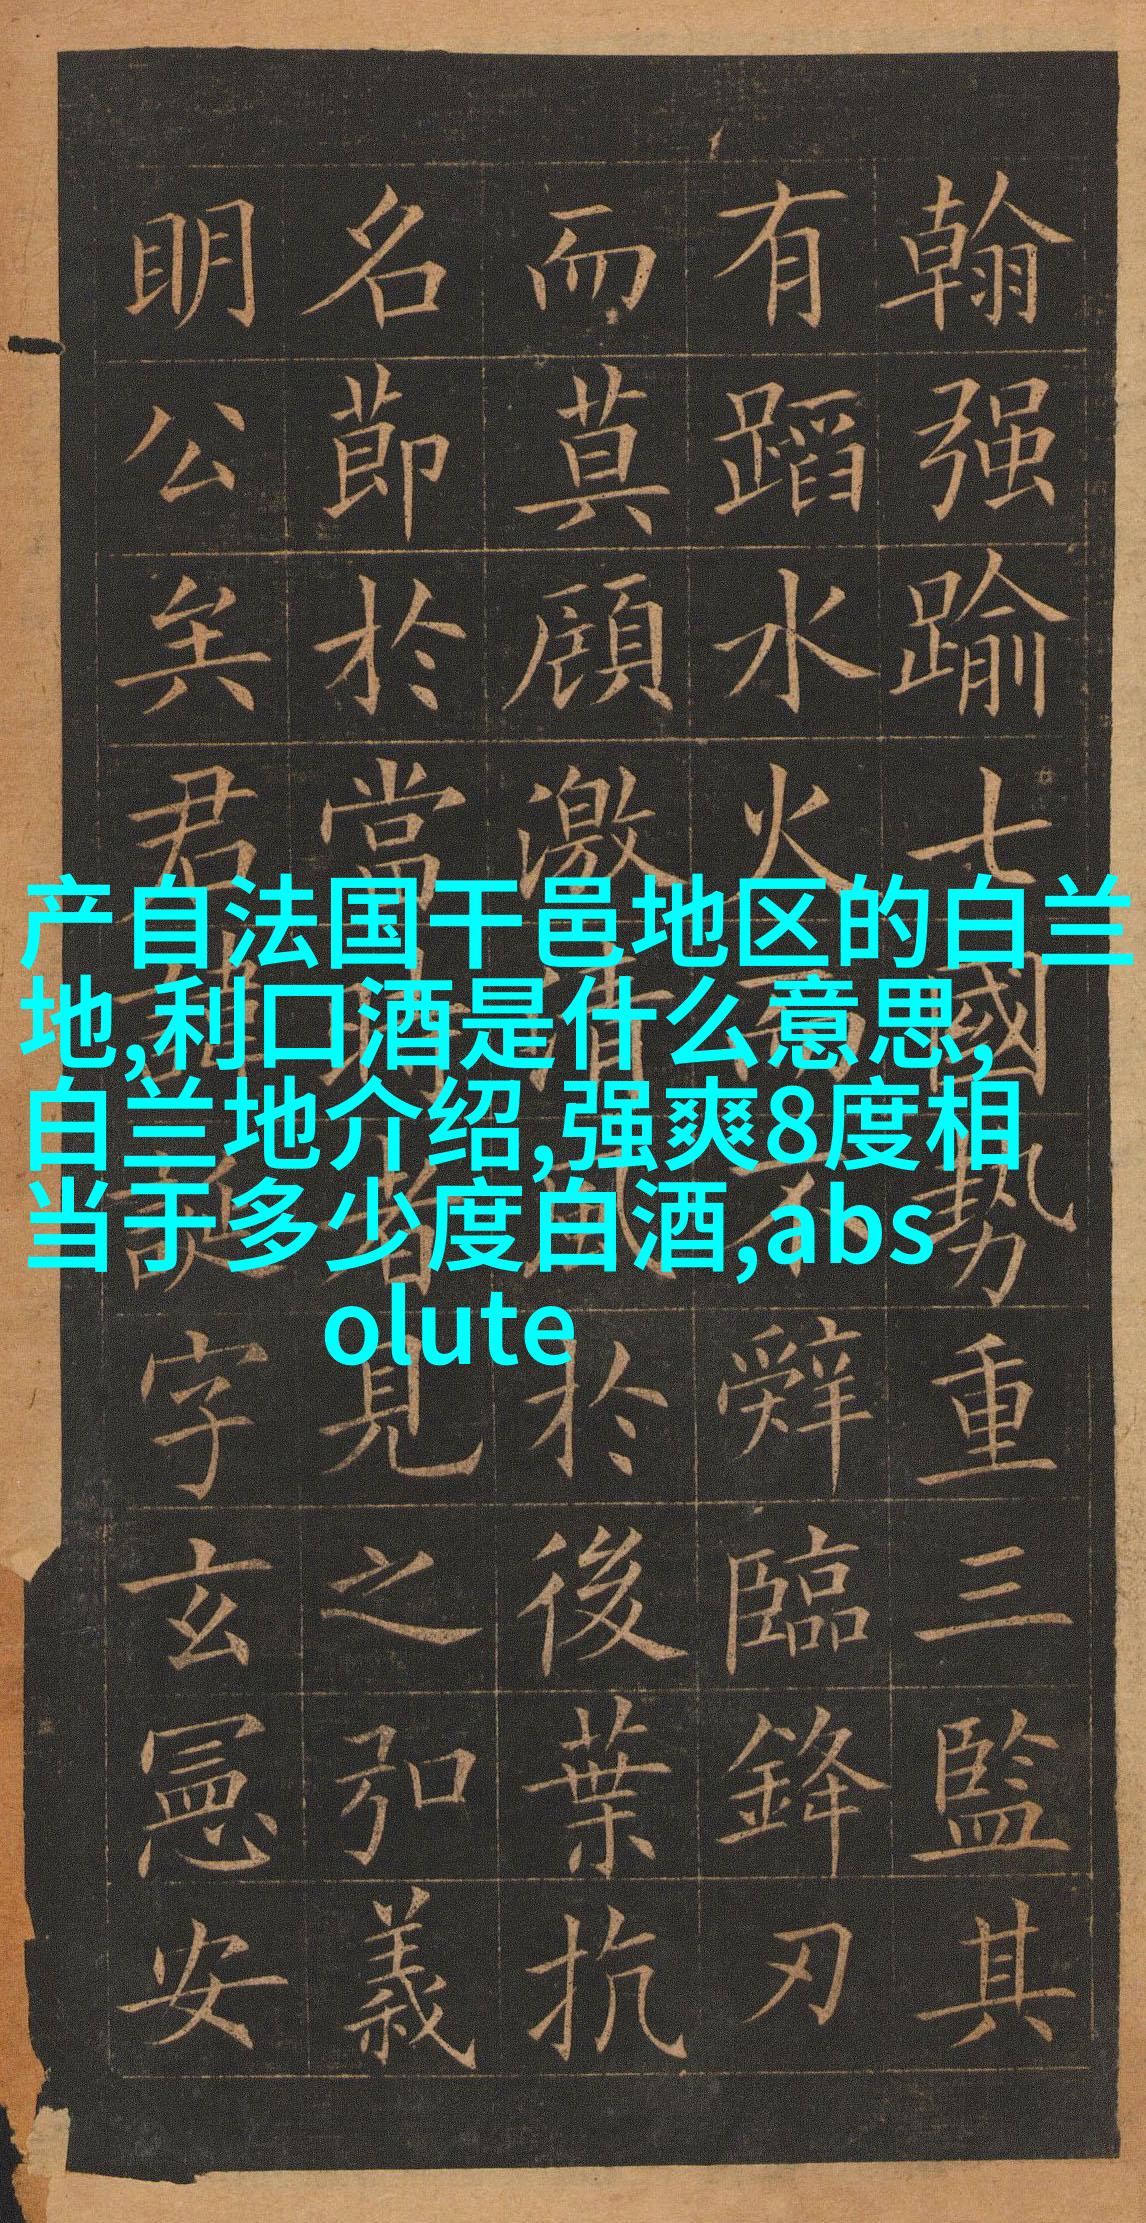 翰强踰七國勢重三監其
有蹈水火而不辤臨鋒刃
而莫顧激清風於後葉抗
名莭於當時者見之弘義
明公矣君諱誕字玄憲安
产自法国干邑地区的白兰
地,利口酒是什么意思,
白兰地介绍,强爽8度相
当于多少度白酒,abs
olute